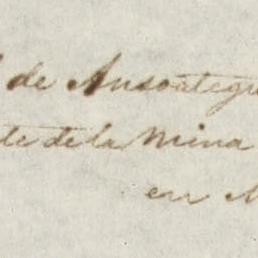 de Ansoategu
te de la Mina
en